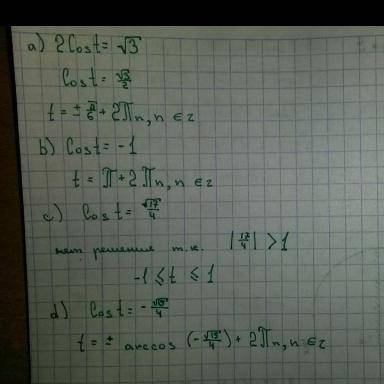 a) 2Cost = √3
Cost = √3/2
t = ± π/6 + 2πn, n ∈ z
b) Cost = -1
t = π + 2πn, n ∈ z
c) Cost = √17/4
нет решение т.к. |17/4| > 1
-1 ⩽ t ⩽ 1
d) Cost = -√15/4
t = ± arccos (-√15/4) + 2πn, n ∈ z